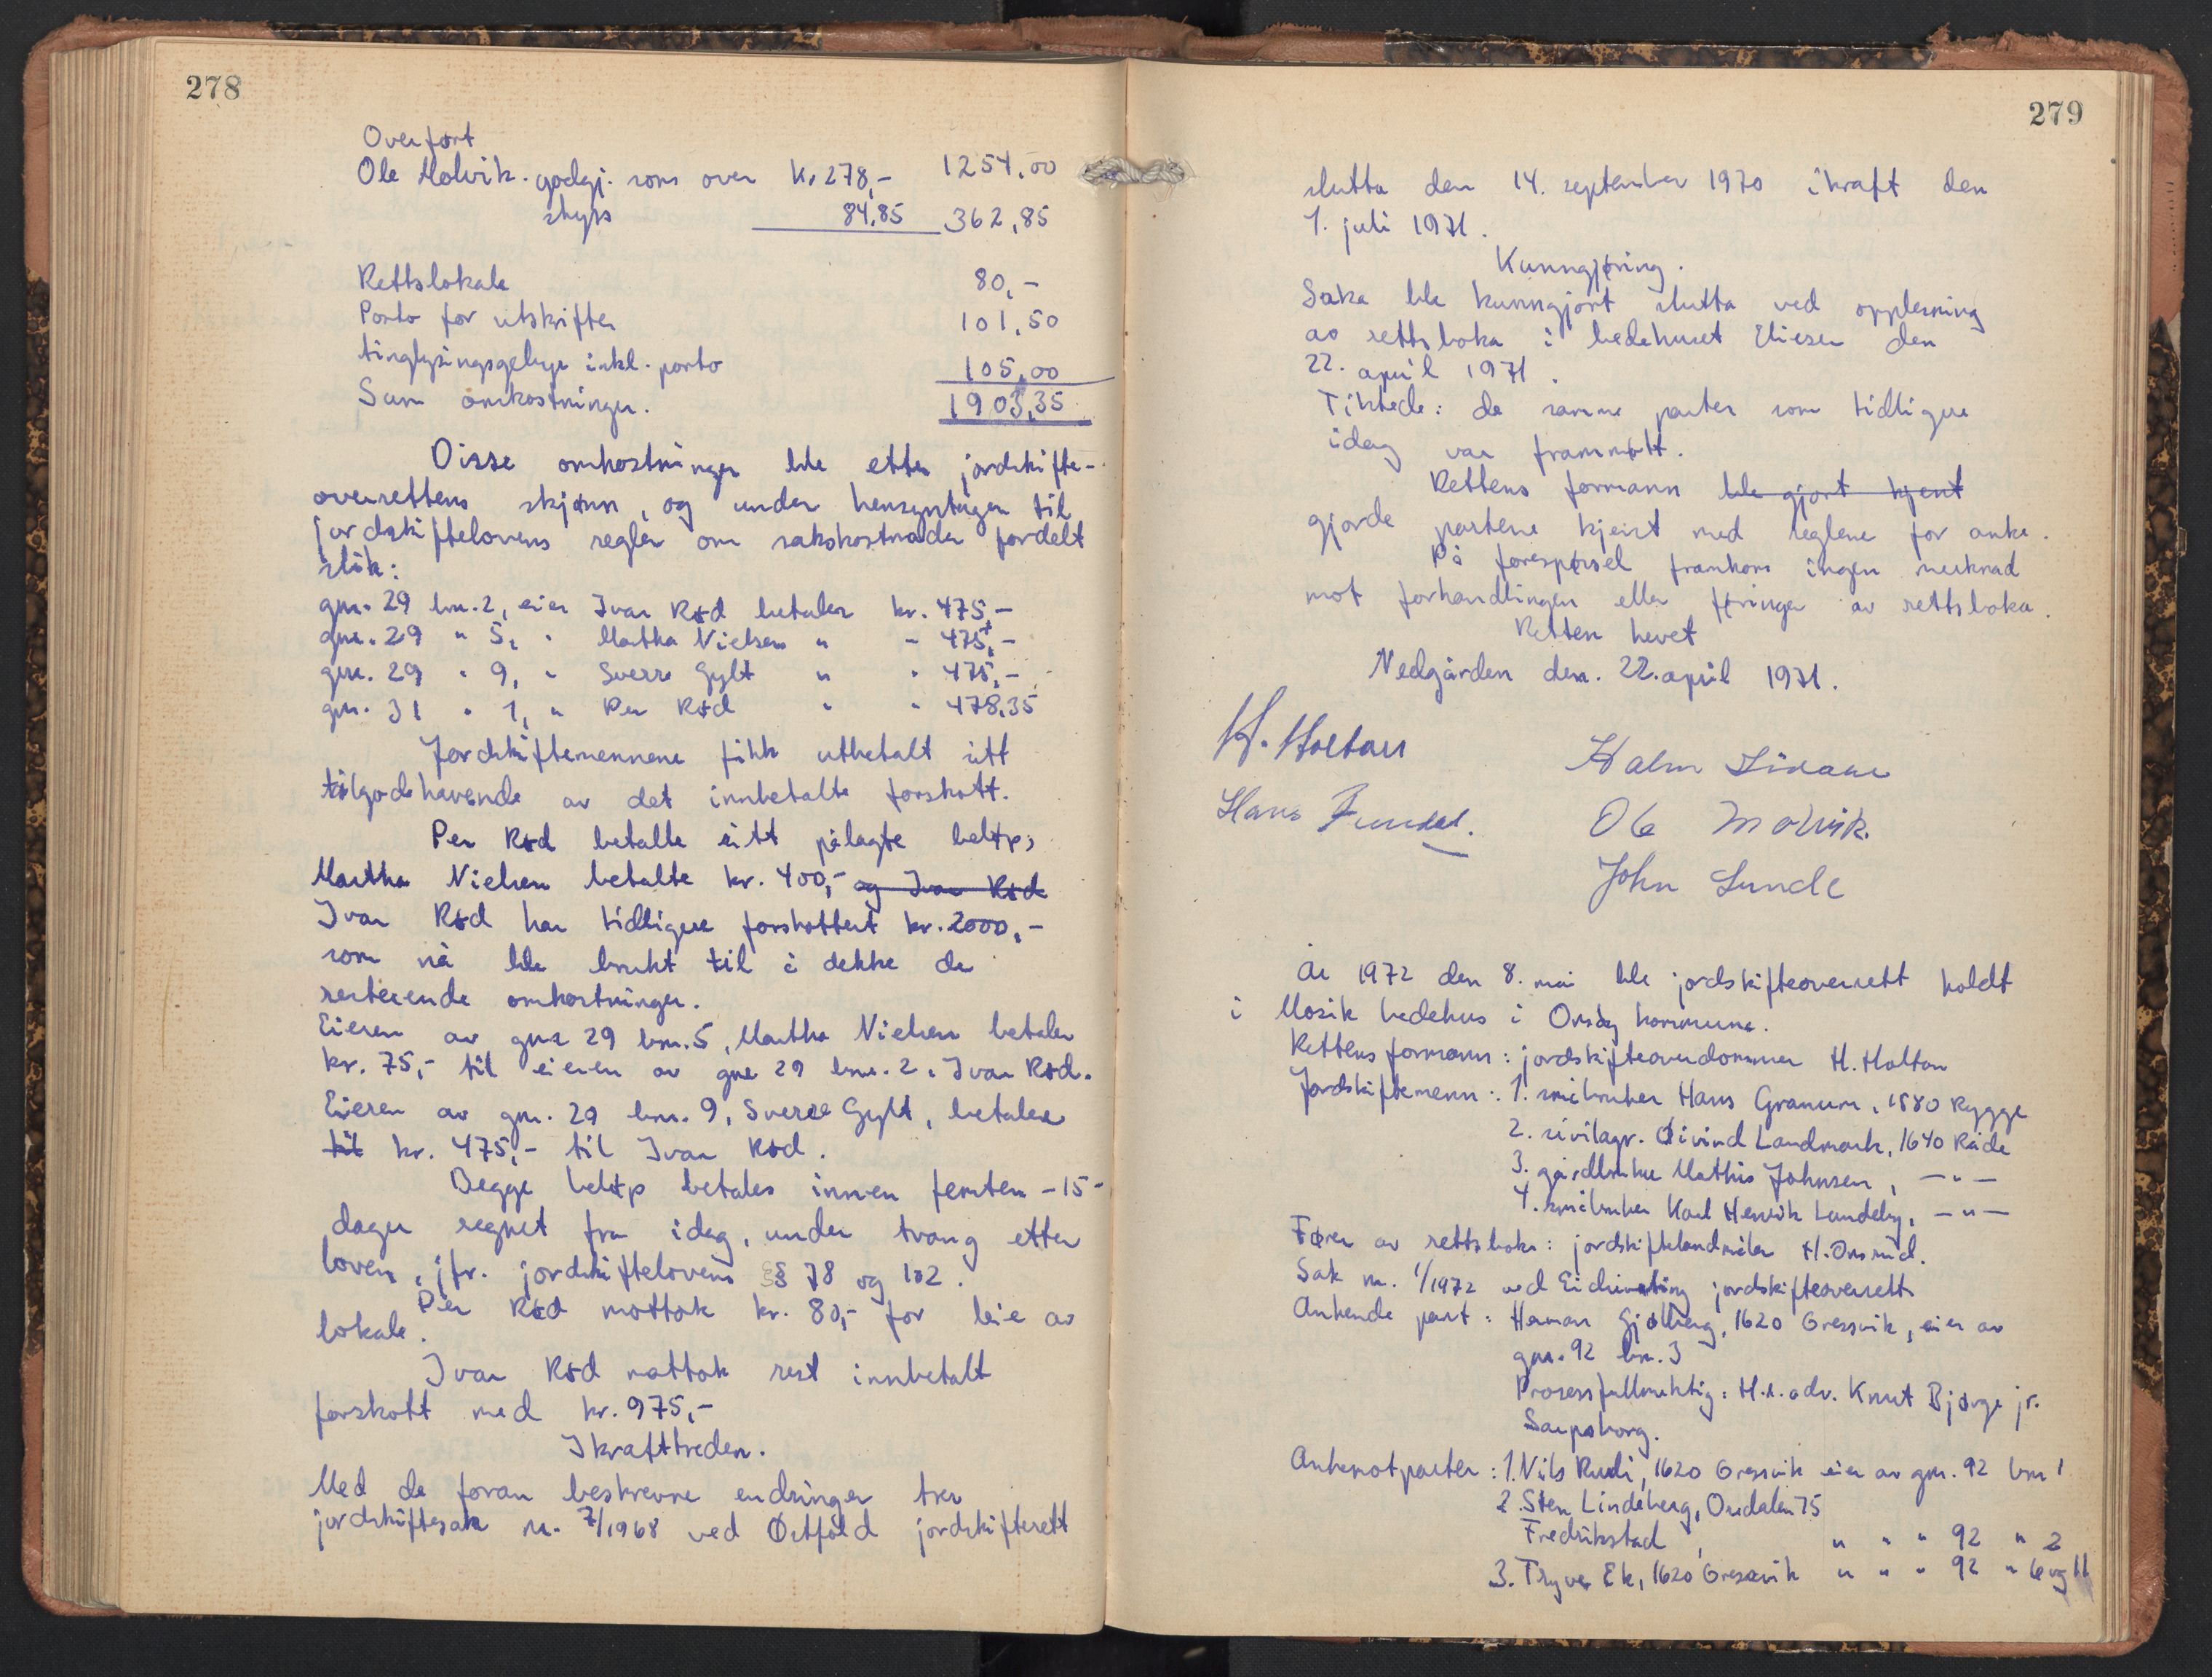 278
Overført
Ole Molvik. godgj. som over kr 278,- 1254,00
skyss 84,85 362,85
Rettslokale 80,-
Porto for utskrifter 101,50
tinglysingsgebyr inkl. porto 105,00
Sum omkostninger. 1903,35
Disse omkostninger ble etter jordskifte-
overrettens skjønn, og under hensyntagen til
jordskiftelovens regler om sakskostnader fordelt
slik:
gnr. 29 bnr. 2, eier Ivar Rød betaler kr. 475,-
gnr. 29 " 5, " Martha Nielsen " - 475,-
gnr. 29 " 9, " Sverre Gylt " " 475,-
gnr. 31 " 1, " Per Rød " " 478,35
Jordskiftemennene fikk utbetalt sitt
tilgodehavende av det innbetalte forskott.
Per Rød betalte sitt pålagte beløp,
Martha Nielsen betalte kr. 400,- og Ivar Rød
Ivar Rød har tidligere forskottert kr. 2000,-
som nå ble brukt til å dekke de
resterende omkostninger.
Eieren av gnr 29 bnr. 5, Martha Nielsen betaler
kr. 75,- til eieren av gnr 29 bnr. 2, Ivar Rød.
Eieren av gnr. 29 bnr. 9, Sverre Gylt, betaler
til kr. 475,- til Ivar Rød.
Begge beløp betales innen femten -15-
dager regnet fra idag, under tvang etter
loven, jfr. jordskiftelovens §§ 78 og 102.
Per Rød mottok kr. 80,- for leie av
lokale.
Ivar Rød mottok rest innbetalt
forskott med kr. 975,-
Ikrafttreden.
Med de foran beskrevne endringer trer
jordskiftesak nr. 7/1968 ved Østfold jordskifterett
279
slutta den 14. september 1970 i kraft den
1. juli 1971.
Kunngjøring.
Saka ble kunngjort slutta ved opplesning
av rettsboka i bedehuset Elieser den
22. april 1971.
Tilstede: de samme parter som tidligere
idag var frammøtt.
Rettens formann ble gjort kjent
gjorde partene kjent med reglene for anke.
På forespørsel framkom ingen merknad
mot forhandlingen eller føringa av rettsboka.
Retten hevet
Nedgården den. 22. april 1971.
H. Holtan
Halm
Hans
Ole Molvik.
John Lunde
År 1972 den 8. mai ble jordskifteoverrett holdt
i Mosik bedehus i Onsøy kommune.
Rettens formann: jordskifteoverdommer H. Holtan
Jordskiftemenn: 1. småbruker Hans Granum, 1580 Rygge
2. sivilagr. Øivind Landmark, 1640 Råde
3. gårdbruker Mathis Johnsen, -"-
4. småbruker Karl Henrik Lundeby, -"-
Fører av rettsboka: jordskiftelandmåler H. Onsrud.
Sak nr. 1/1972 ved Eidsivating jordskifteoverrett
Ankende part: Herman Gjølberg, 1620 Gressvik, eier av
gnr. 92 bnr. 3
Prosessfullmektig: H.r.adv. Knut Bjørge jr.
Sarpsborg.
Ankemotparter: 1. Nils Rudi, 1620 Gressvik eier av gnr. 92 bnr 1
2. Sten Lindeberg, Oredalen 75
Fredrikstad, " " " 92 " 2
3. Trygve Ek, 1620 Gressvik " " " 92 " 6 og 11